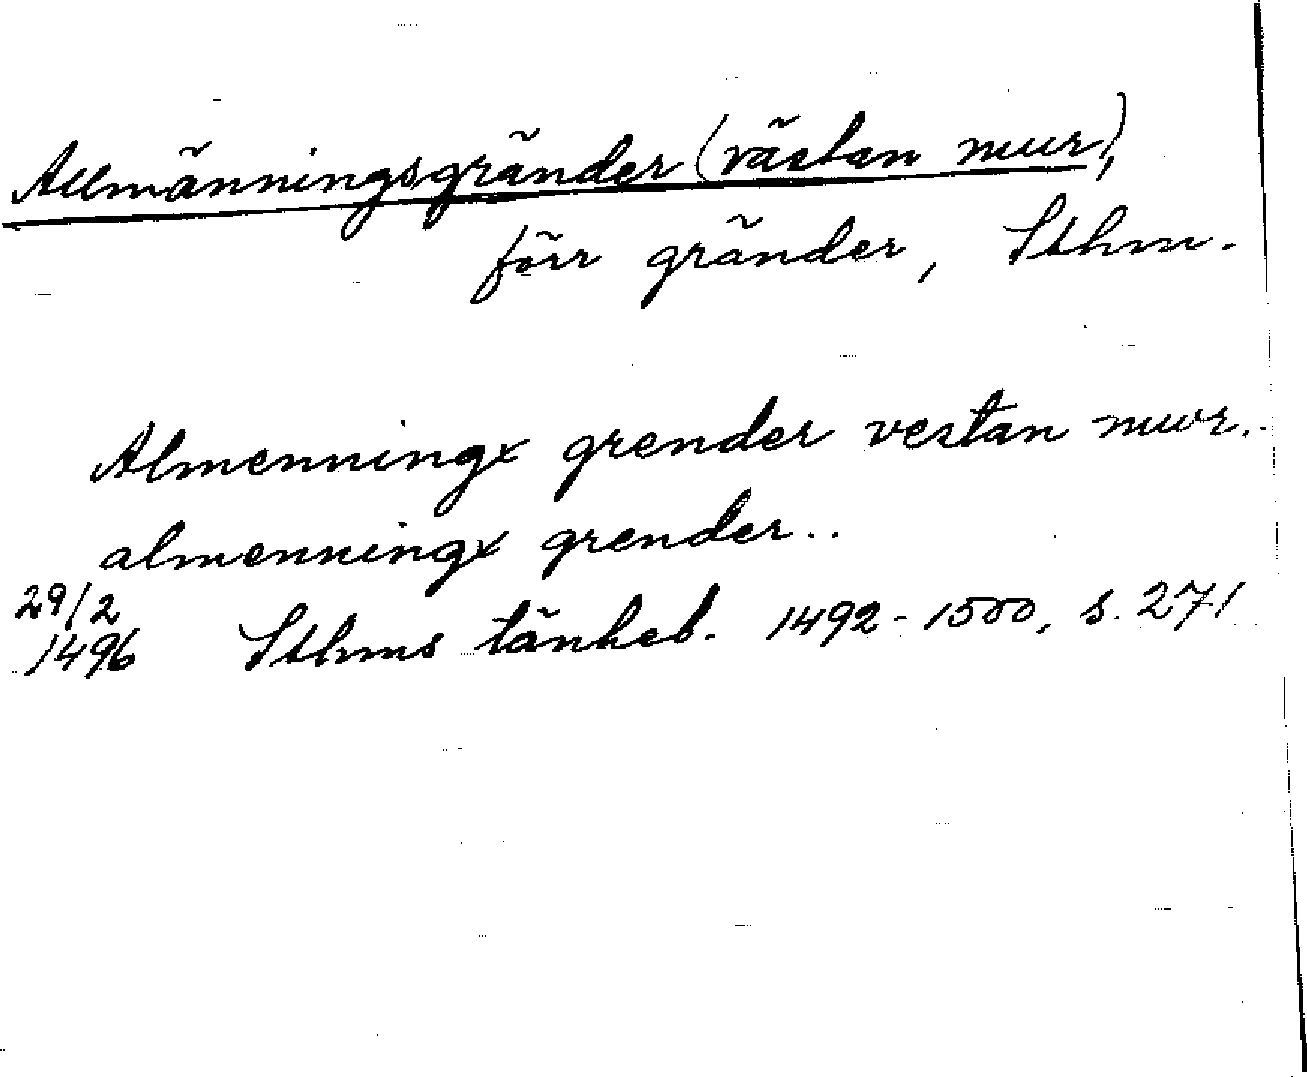 Allmänningsgränder (västan mur),
förr gränder, Sthm.
Almenningx grender vestan mwr..
almenningx grender..
29/2
1496 Sthms tänkeb. 1492-1500, s. 271